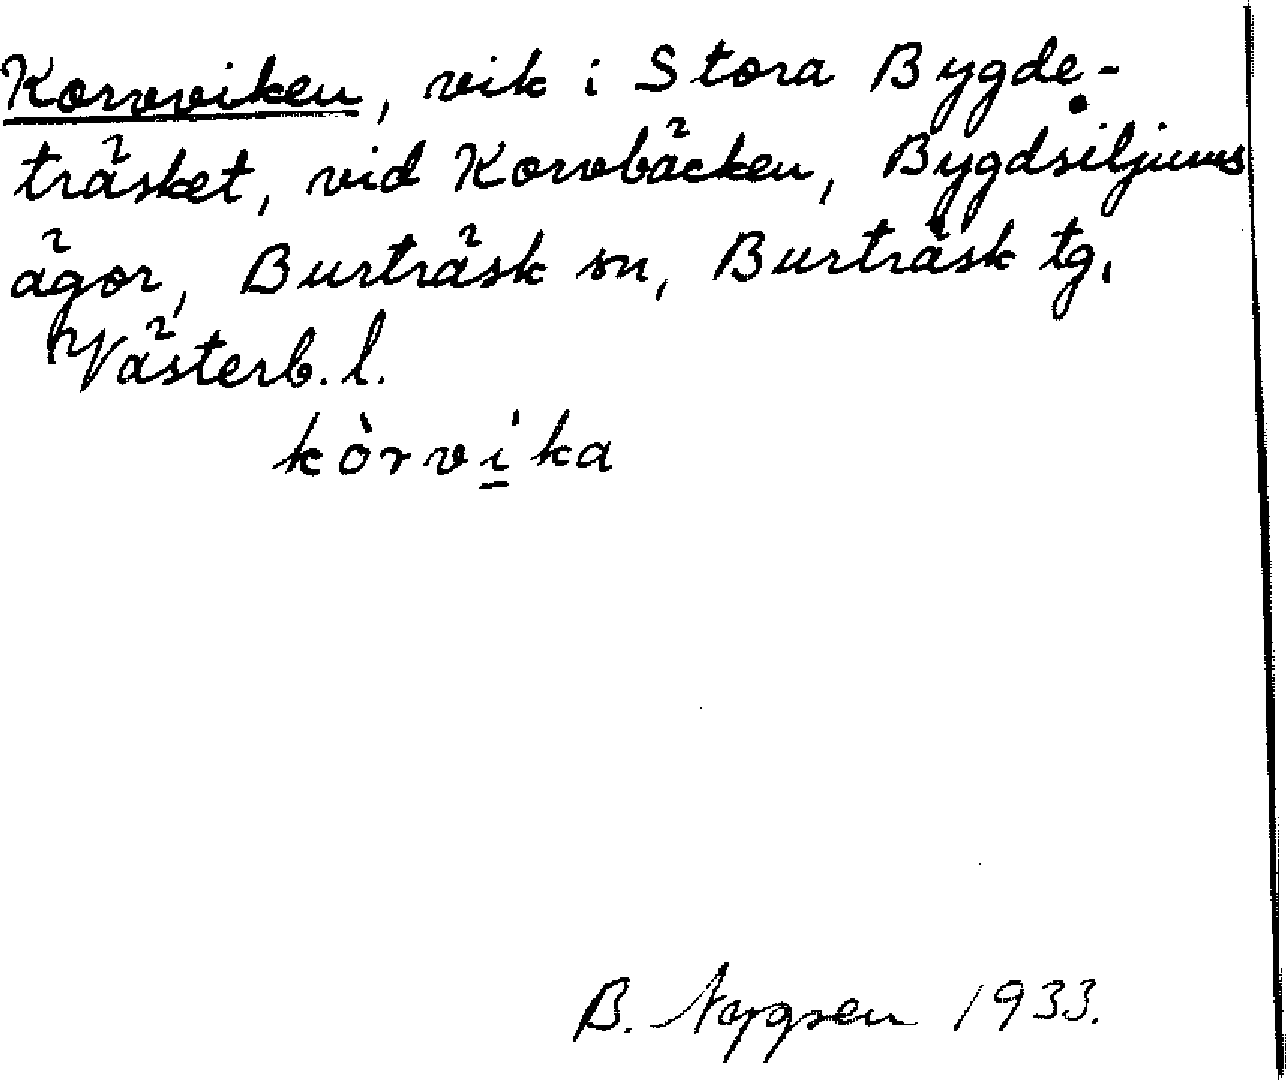 Korvviken, vik i Stora Bygde-
träsket, vid Korvbäcken, Bygdsiljums
ägor, Burträsk sn, Burträsk tg,
Västerb. l.
kòrvi̱ka
B. 1933.